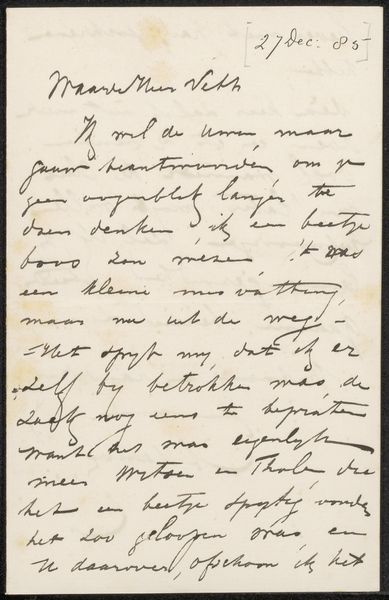 [27 Dec. 85]
Waarde Heer Veth
Ik wil de uwen maar
gauw beantwoorden om u
geen oogenblik langer te
doen denken ik een beetje
boos zou wezen 't was
een kleine misvatting,
maar nu uit de weg -
- Het spijt mij dat ik er
zelf bij betrokken was, de
zaak nog eens te bepraten
want het was eigenlijk
meer Witsen en Tholen die
het een beetje spijtig vonden
het zoo geloopen was en
U daarover, ofschoon ik het